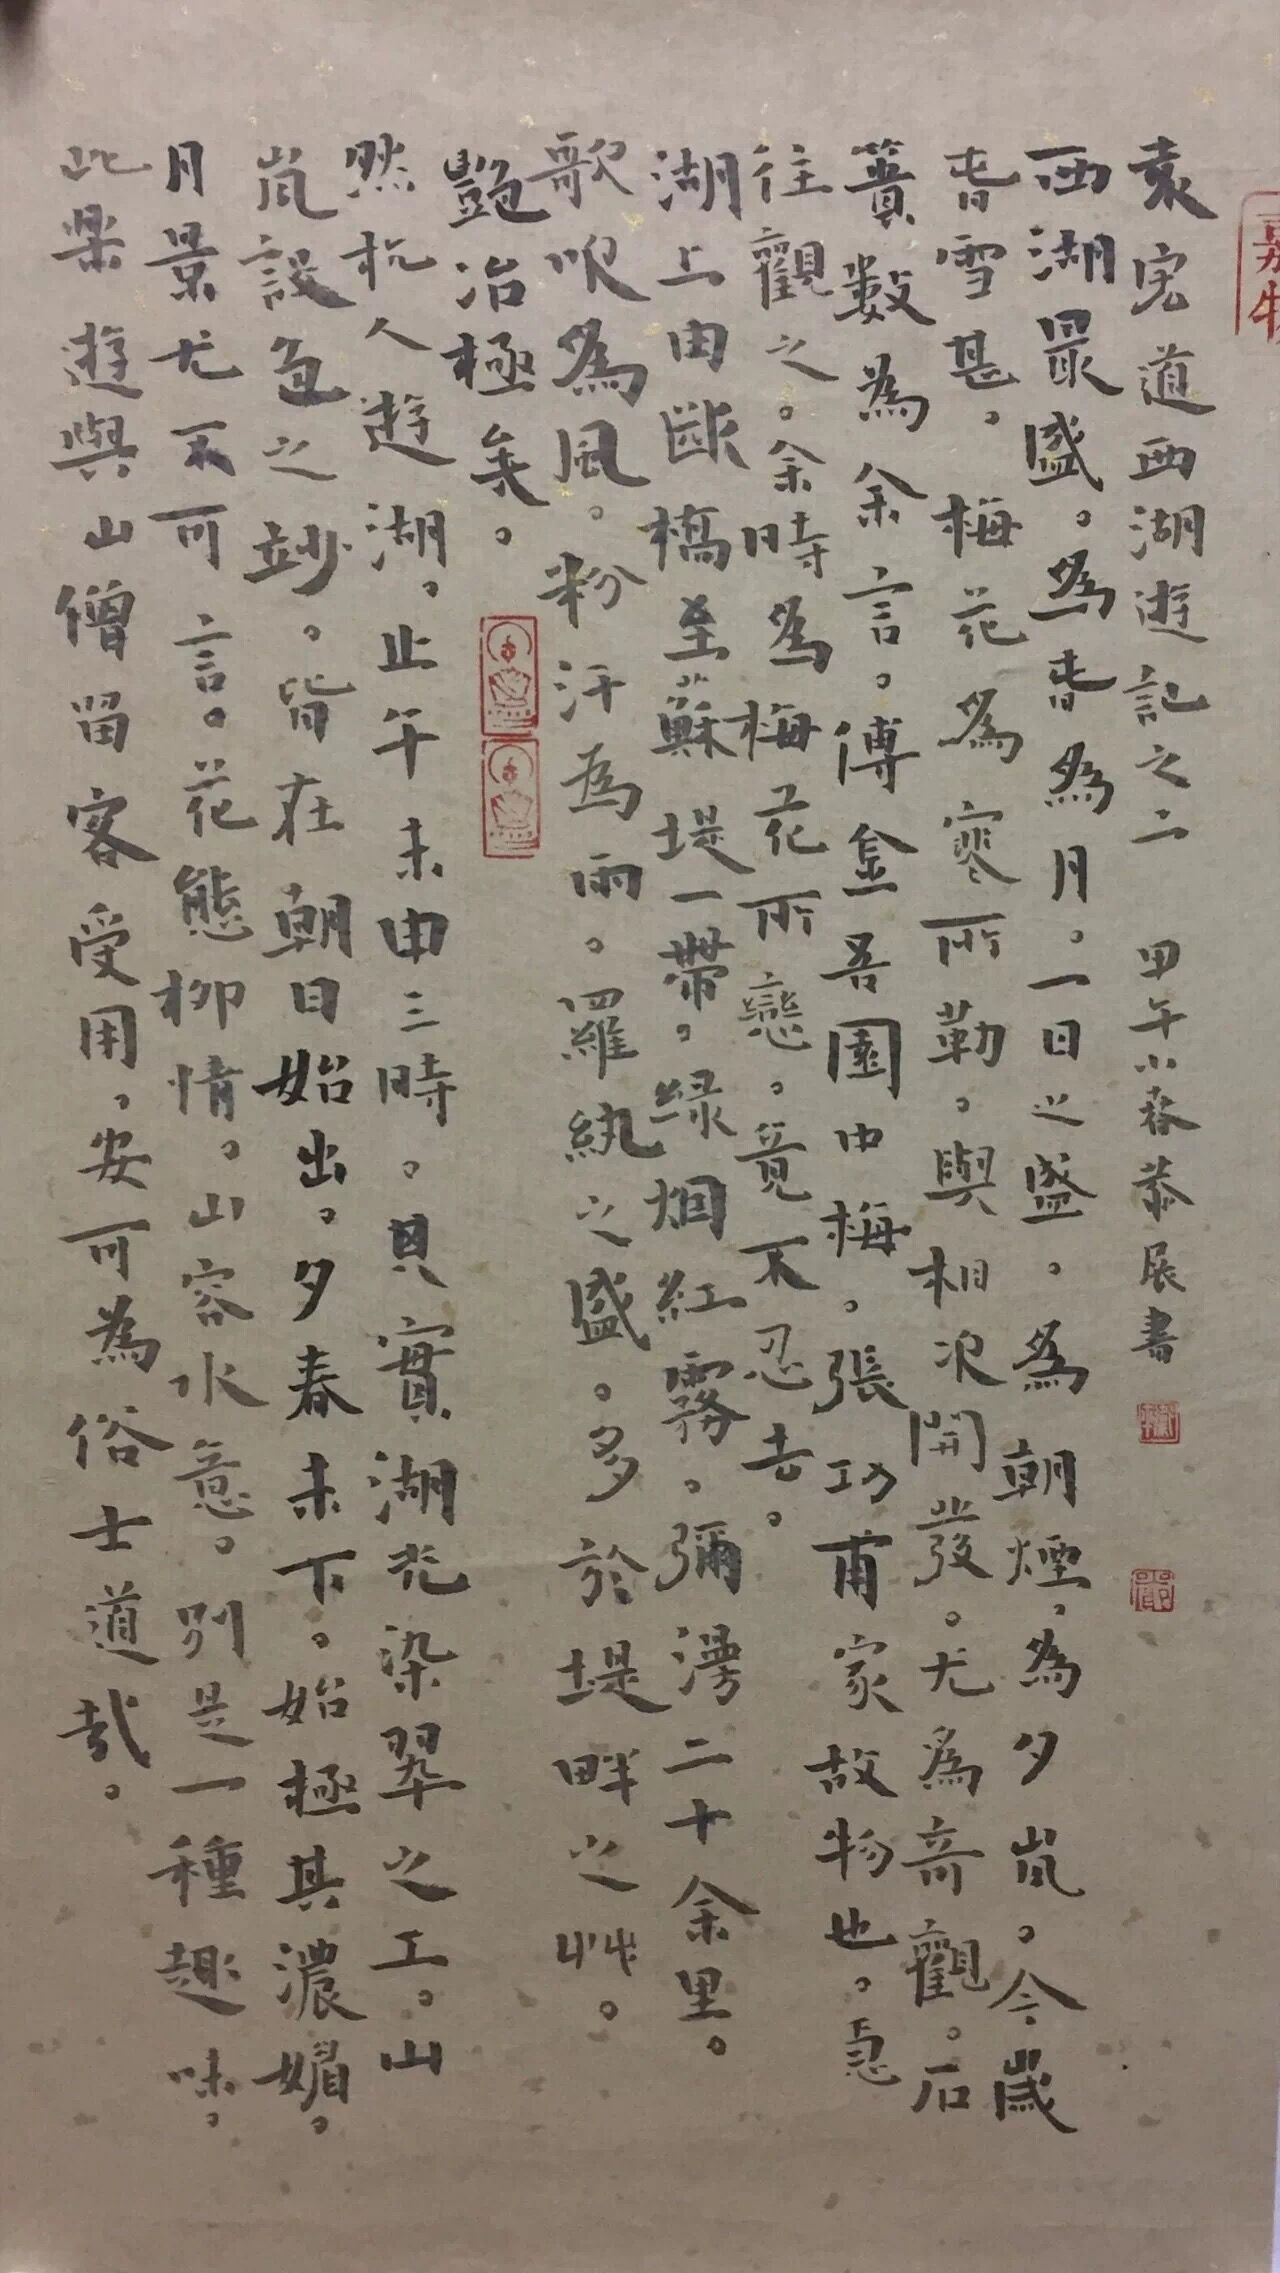 袁宏道西湖遊記之二 甲午小春恭展書
西湖最盛。為春為月。一日之盛。為朝煙，為夕嵐。今歲
春雪甚，梅花為寒所勒。與相次開發。尤為奇觀。石
簣數為余言。傅金吾園中梅。張功甫家故物也。急
往觀之。余時為梅花所戀。竟不忍去。
湖上由斷橋至蘇堤一帶。綠烟紅霧。彌漫二十余里。
歌吹為風。粉汗為雨。羅紈之盛。多於堤畔之艸。
豔冶極矣。
然杭人遊湖。止午未申三時。其實湖光染翠之工。山
嵐設色之妙。皆在朝日始出。夕舂未下。始極其濃媚。
月景尤不可言。花態柳情。山容水意。別是一種趣味。
此樂遊與山僧留客受用，安可為俗士道哉。